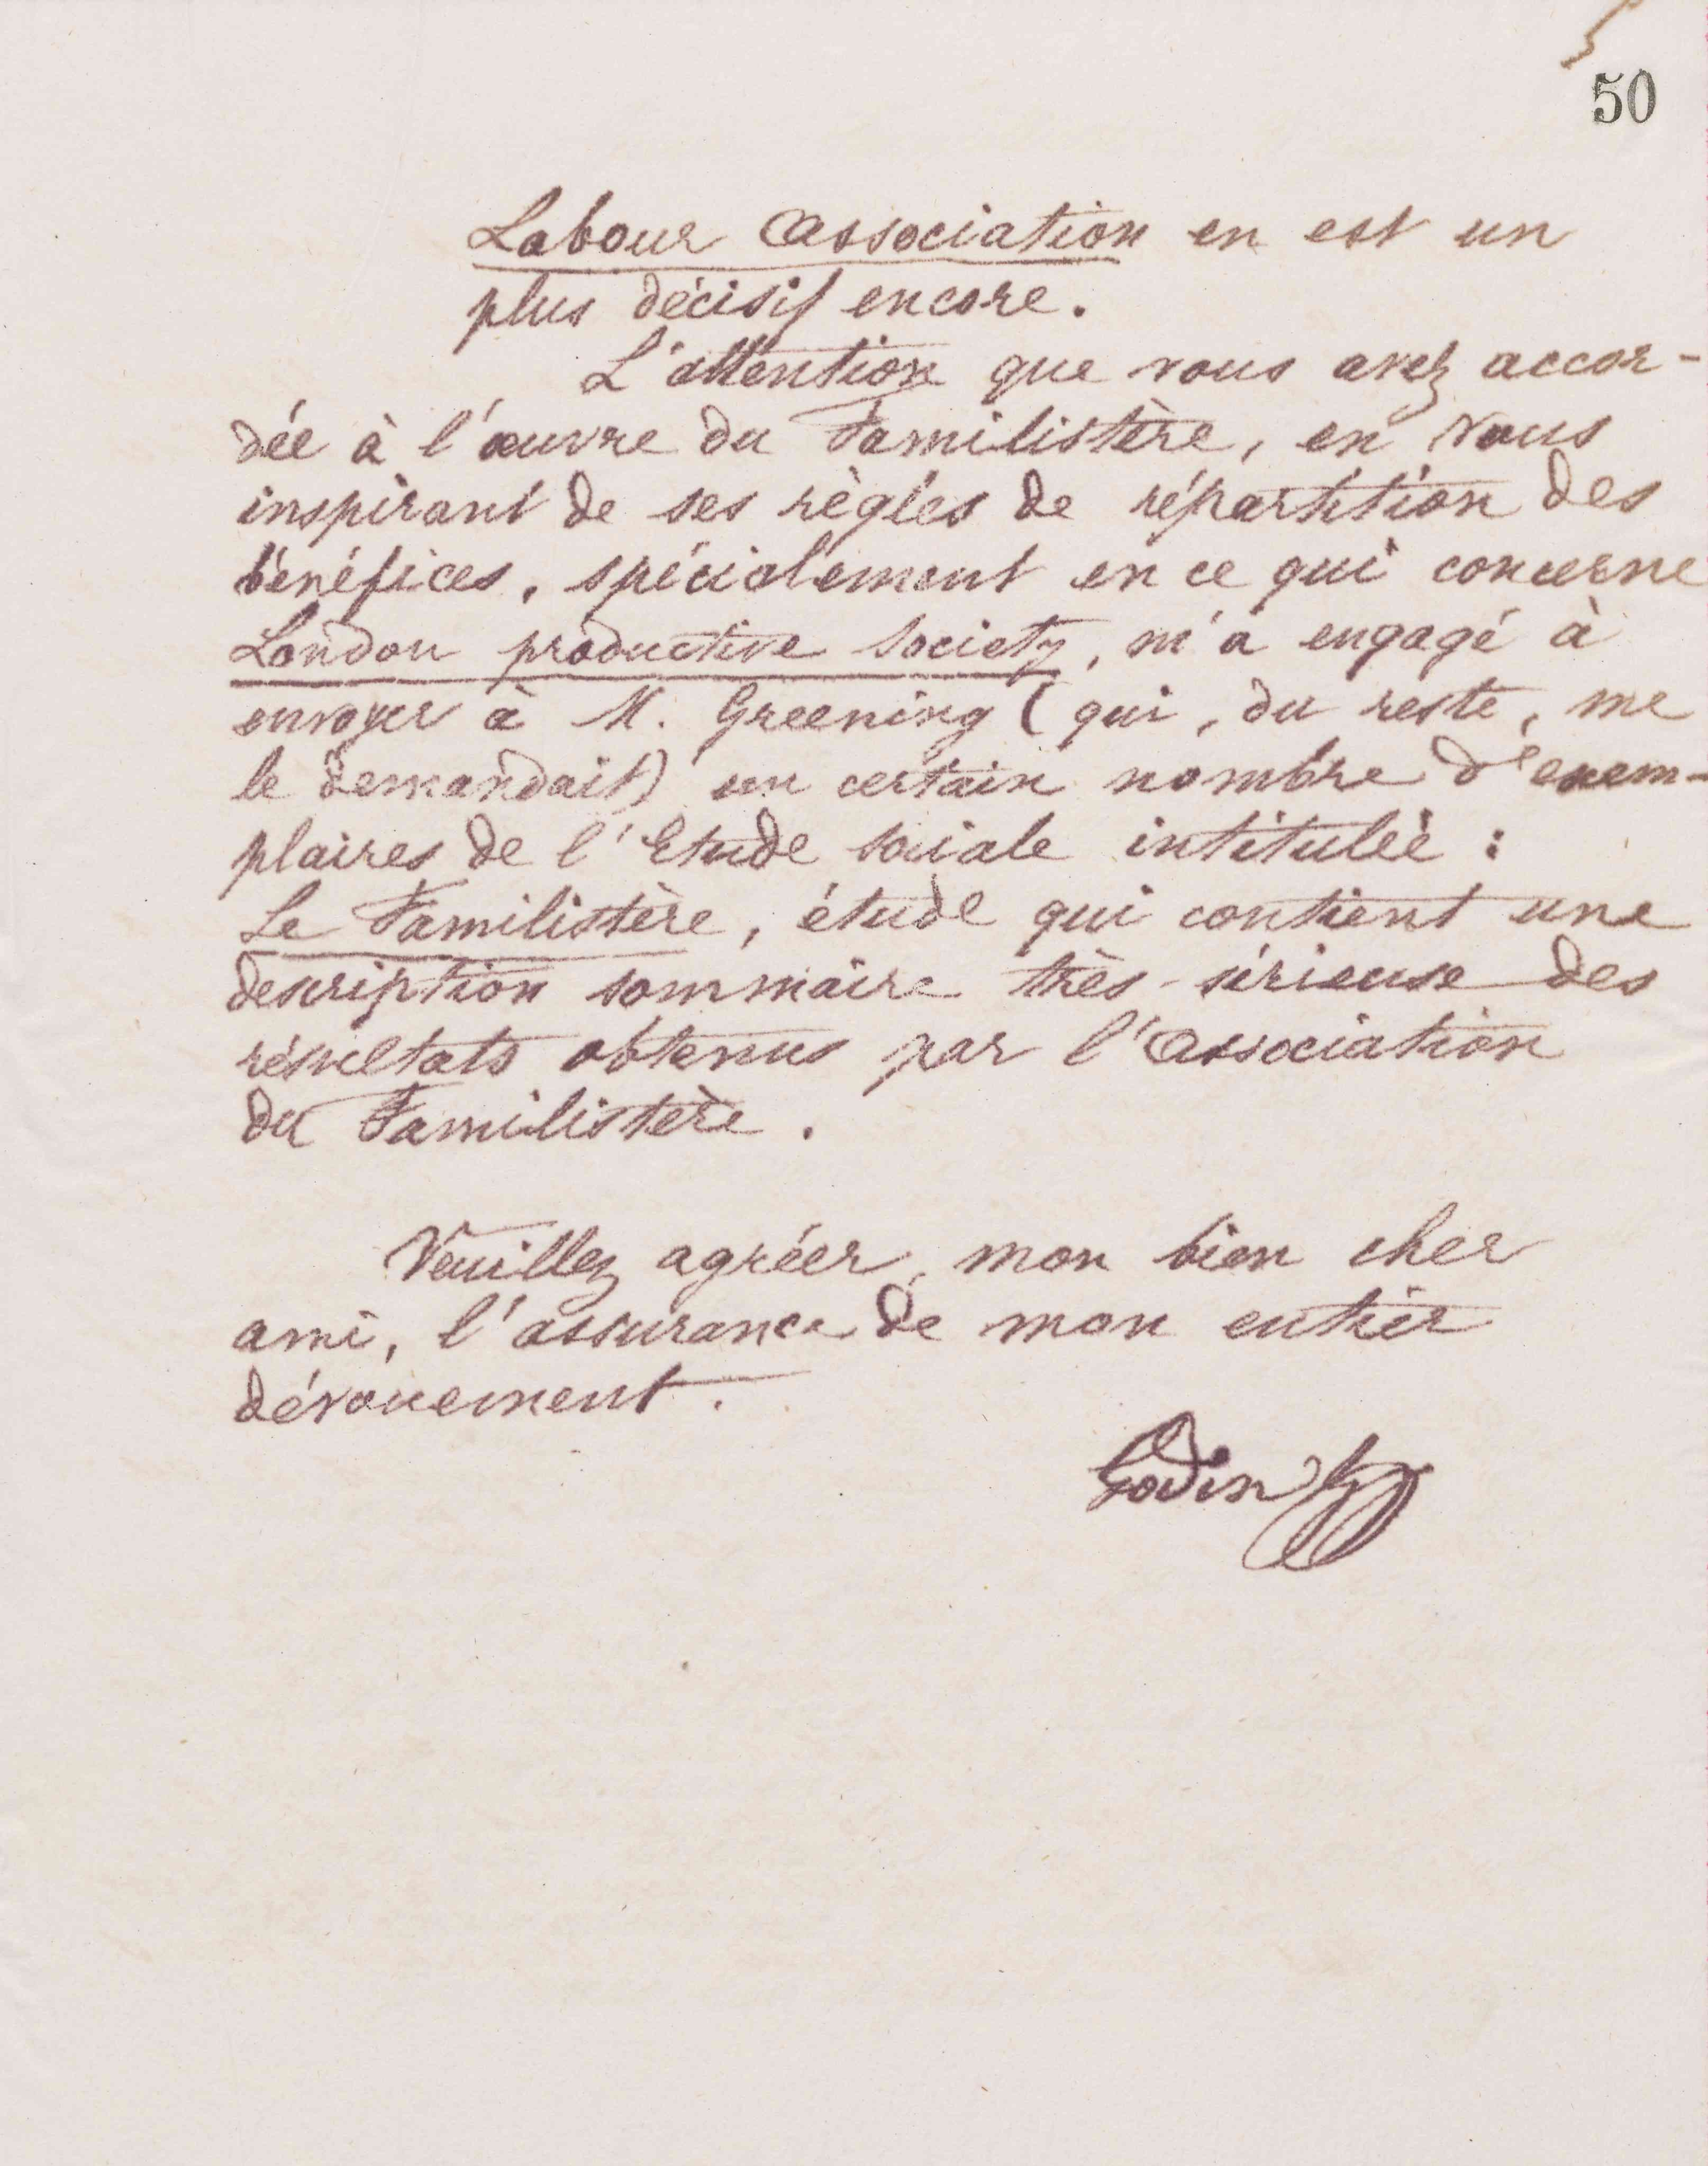 50
Labour Association en est un
plus décisif encore.
L'attention que vous avez accor-
dée à l'œuvre du Familistère, en vous
inspirant de ses règles de répartition des
bénéfices, spécialement en ce qui concerne
London productive Society, m'a engagé à
envoyer à M. Greening (qui, du reste, me
le demandait) un certain nombre d'exem-
plaires de l'Etude sociale intitulée :
Le Familistère, étude qui contient une
description sommaire très-sérieuse des
résultats obtenus par l'Association
du Familistère.
Veuillez agréer, mon bien cher
ami, l'assurance de mon entier
dévouement.
Godin